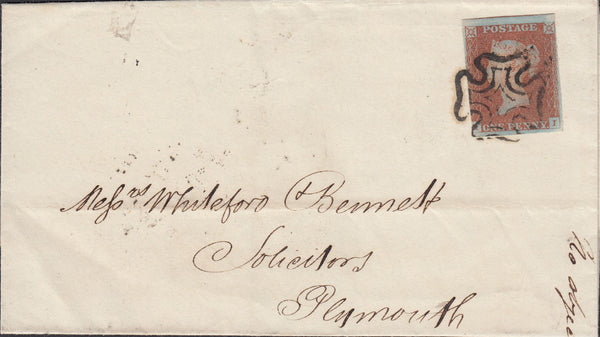 POSTAGE
ONE PENNY
I
Messrs Whiteford & Bennett
Solicitors
Plymouth